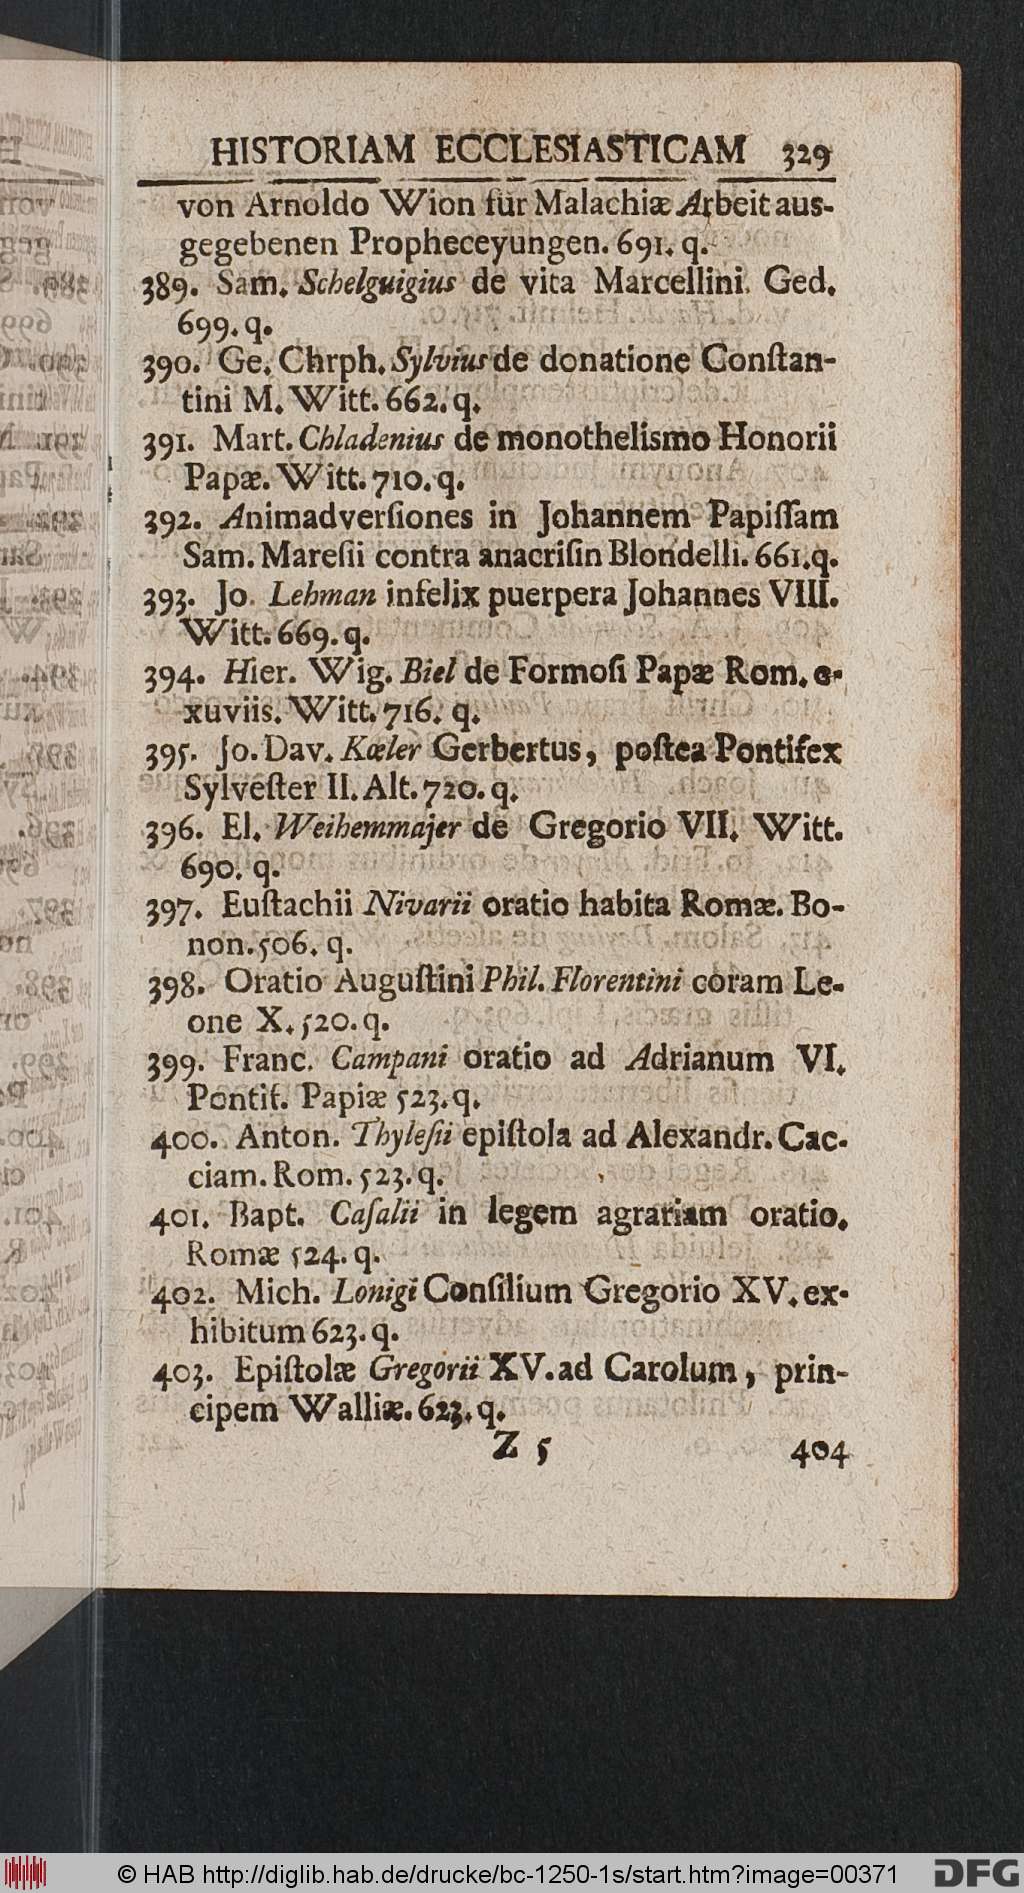 HISTORIAM ECCLESIASTICAM 329
von Arnoldo Wion für Malachiæ Arbeit aus-
gegebenen Propheceyungen. 691. q.
389. Sam. Schelguigius de vita Marcellini. Ged.
699. q.
390. Ge. Chrph. Sylvius de donatione Conſtan-
tini M. Witt. 662. q.
391. Mart. Chladenius de monothelismo Honorii
Papæ. Witt. 710. q.
392. Animadverſiones in Johannem Papiſſam
Sam. Mareſii contra anacriſin Blondelli. 661. q.
393. Jo. Lehman infelix puerpera Johannes VIII.
Witt. 669. q.
394. Hier. Wig. Biel de Formoſi Papæ Rom. e-
xuviis. Witt. 716. q.
395. Jo. Dav. Kœler Gerbertus, poſtea Pontifex
Sylveſter II. Alt. 720. q.
396. El. Weihemmajer de Gregorio VII. Witt.
690. q.
397. Euſtachii Nivarii oratio habita Romæ. Bo-
non. 506. q.
398. Oratio Auguſtini Phil. Florentini coram Le-
one X. 520. q.
399. Franc. Campani oratio ad Adrianum VI.
Pontif. Papiæ 523. q.
400. Anton. Thyleſii epiſtola ad Alexandr. Cac-
ciam. Rom. 523. q.
401. Bapt. Caſalii in legem agrariam oratio.
Romæ 524. q.
402. Mich. Lonigi Conſilium Gregorio XV. ex-
hibitum 623. q.
403. Epiſtolæ Gregorii XV. ad Carolum, prin-
cipem Walliæ. 623. q.
Z 5 404
© HAB http://diglib.hab.de/drucke/bc-1250-1s/start.htm?image=00371 DFG